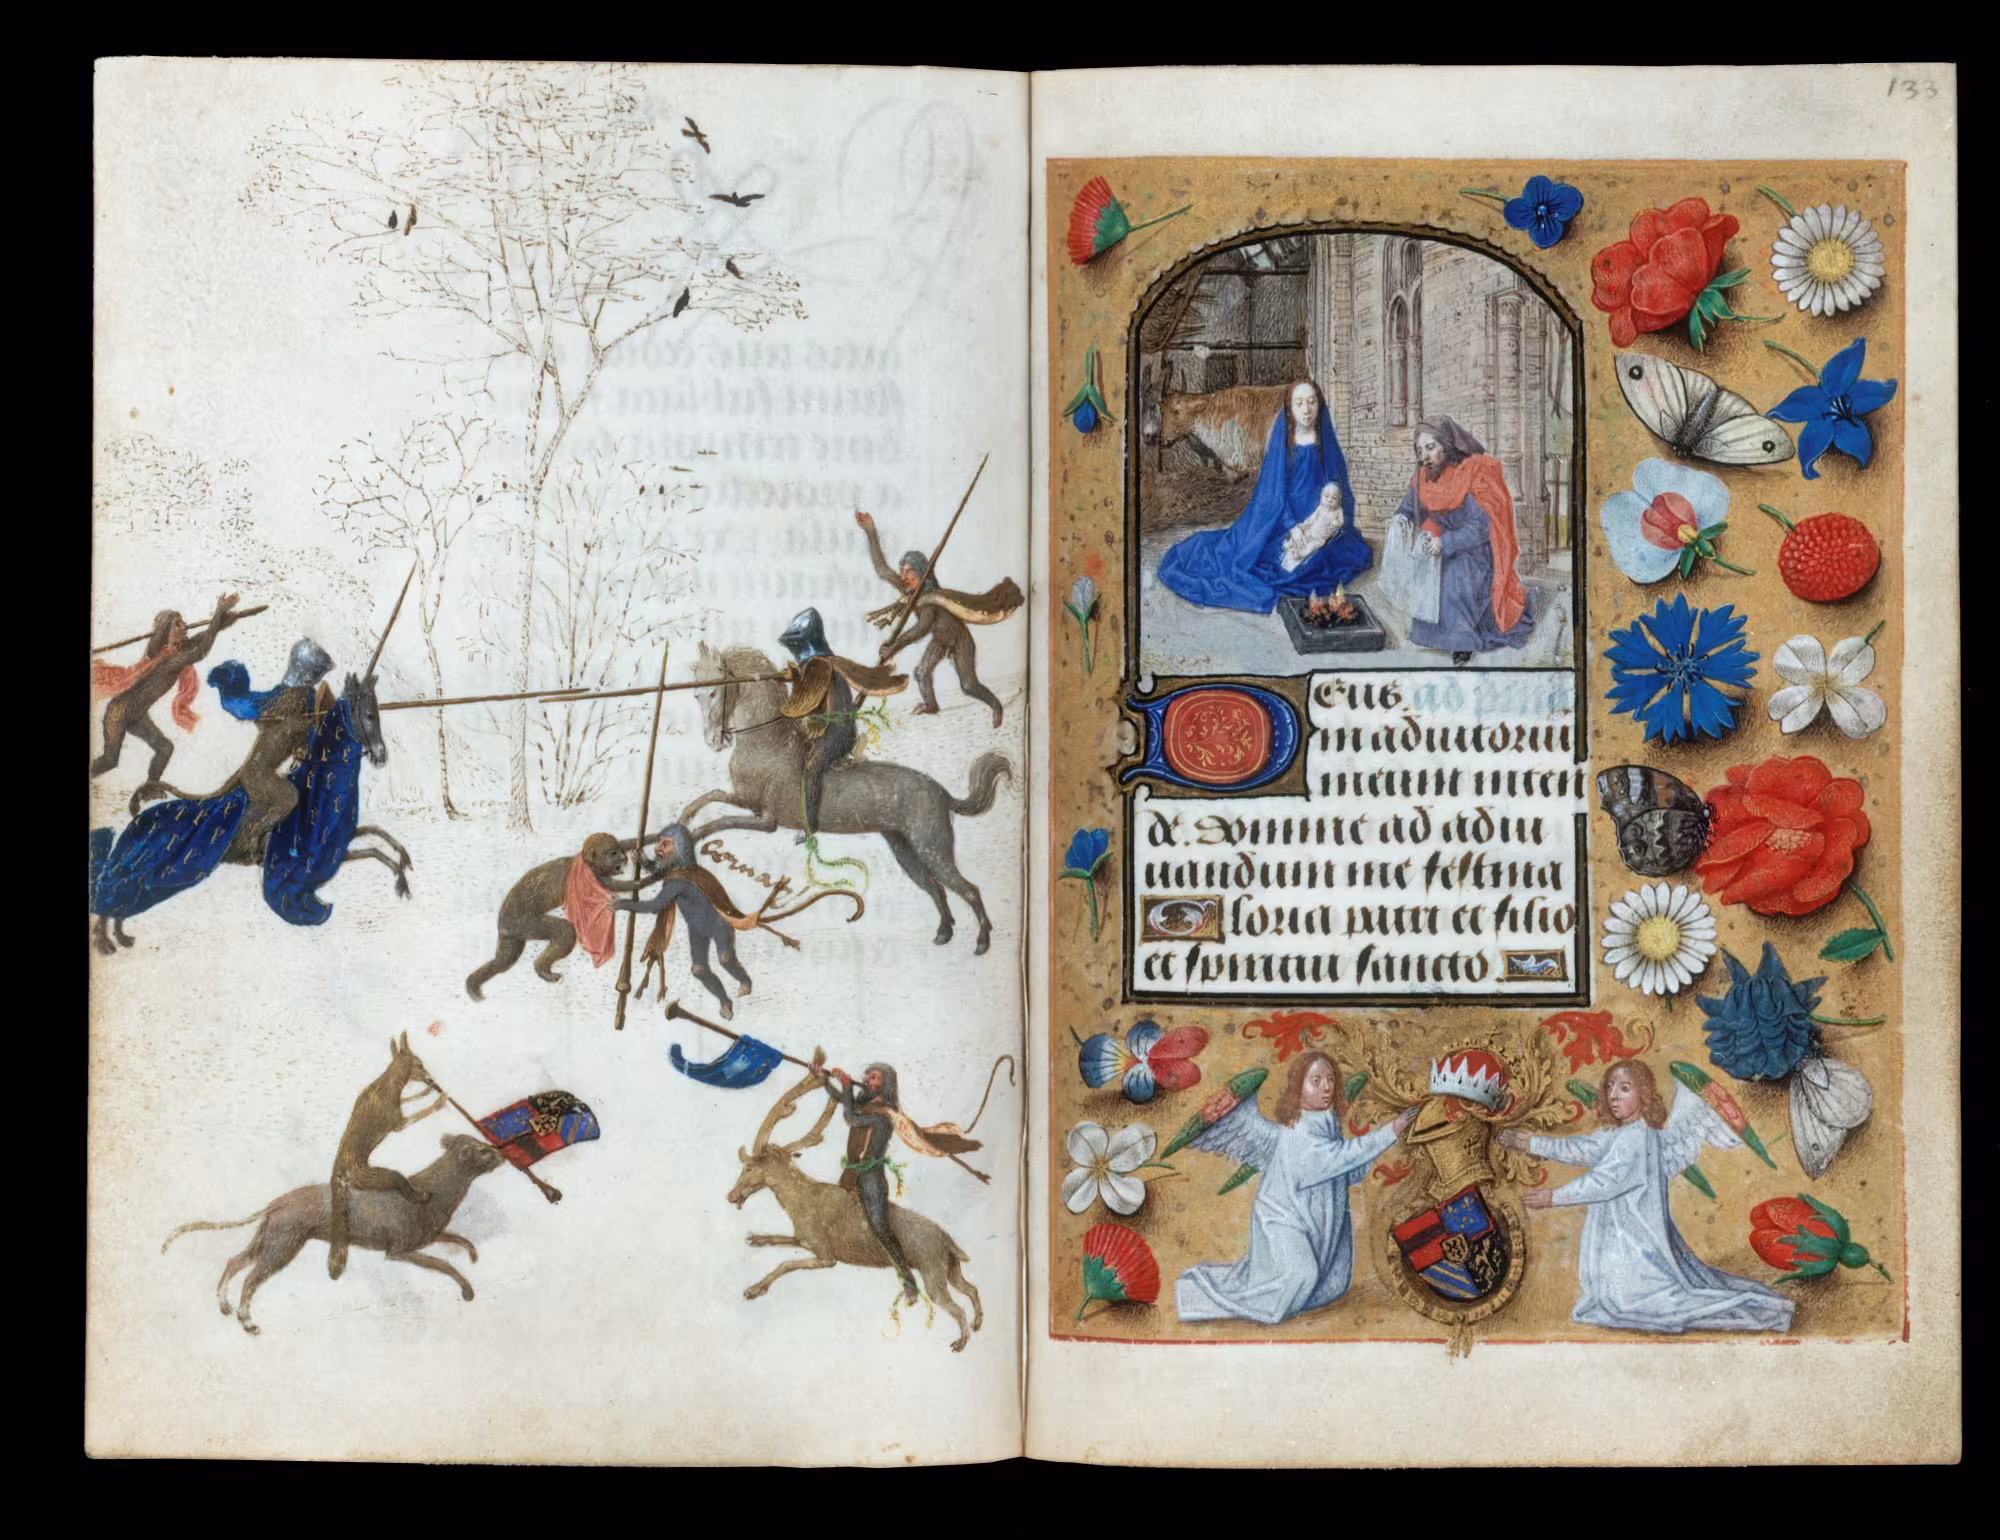 133
Deus
in adiutoriu
meum inten
de. Domine ad adiu
uandum me festina
Gloria patri et filio
et spiritui sancto.